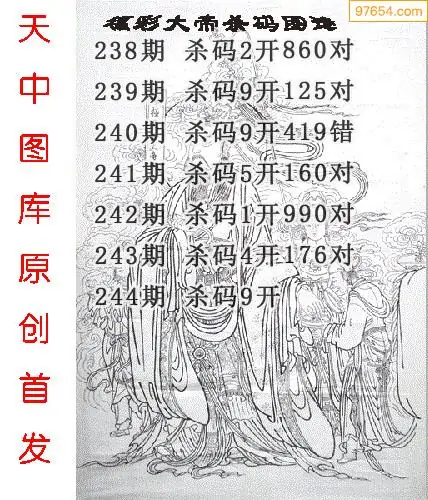 97654.com
福彩大帝杀码图迷
238期 杀码2开860对
239期 杀码9开125对
240期 杀码9开419错
241期 杀码5开160对
242期 杀码1开990对
243期 杀码4开176对
244期 杀码9开
天中图库原创首发